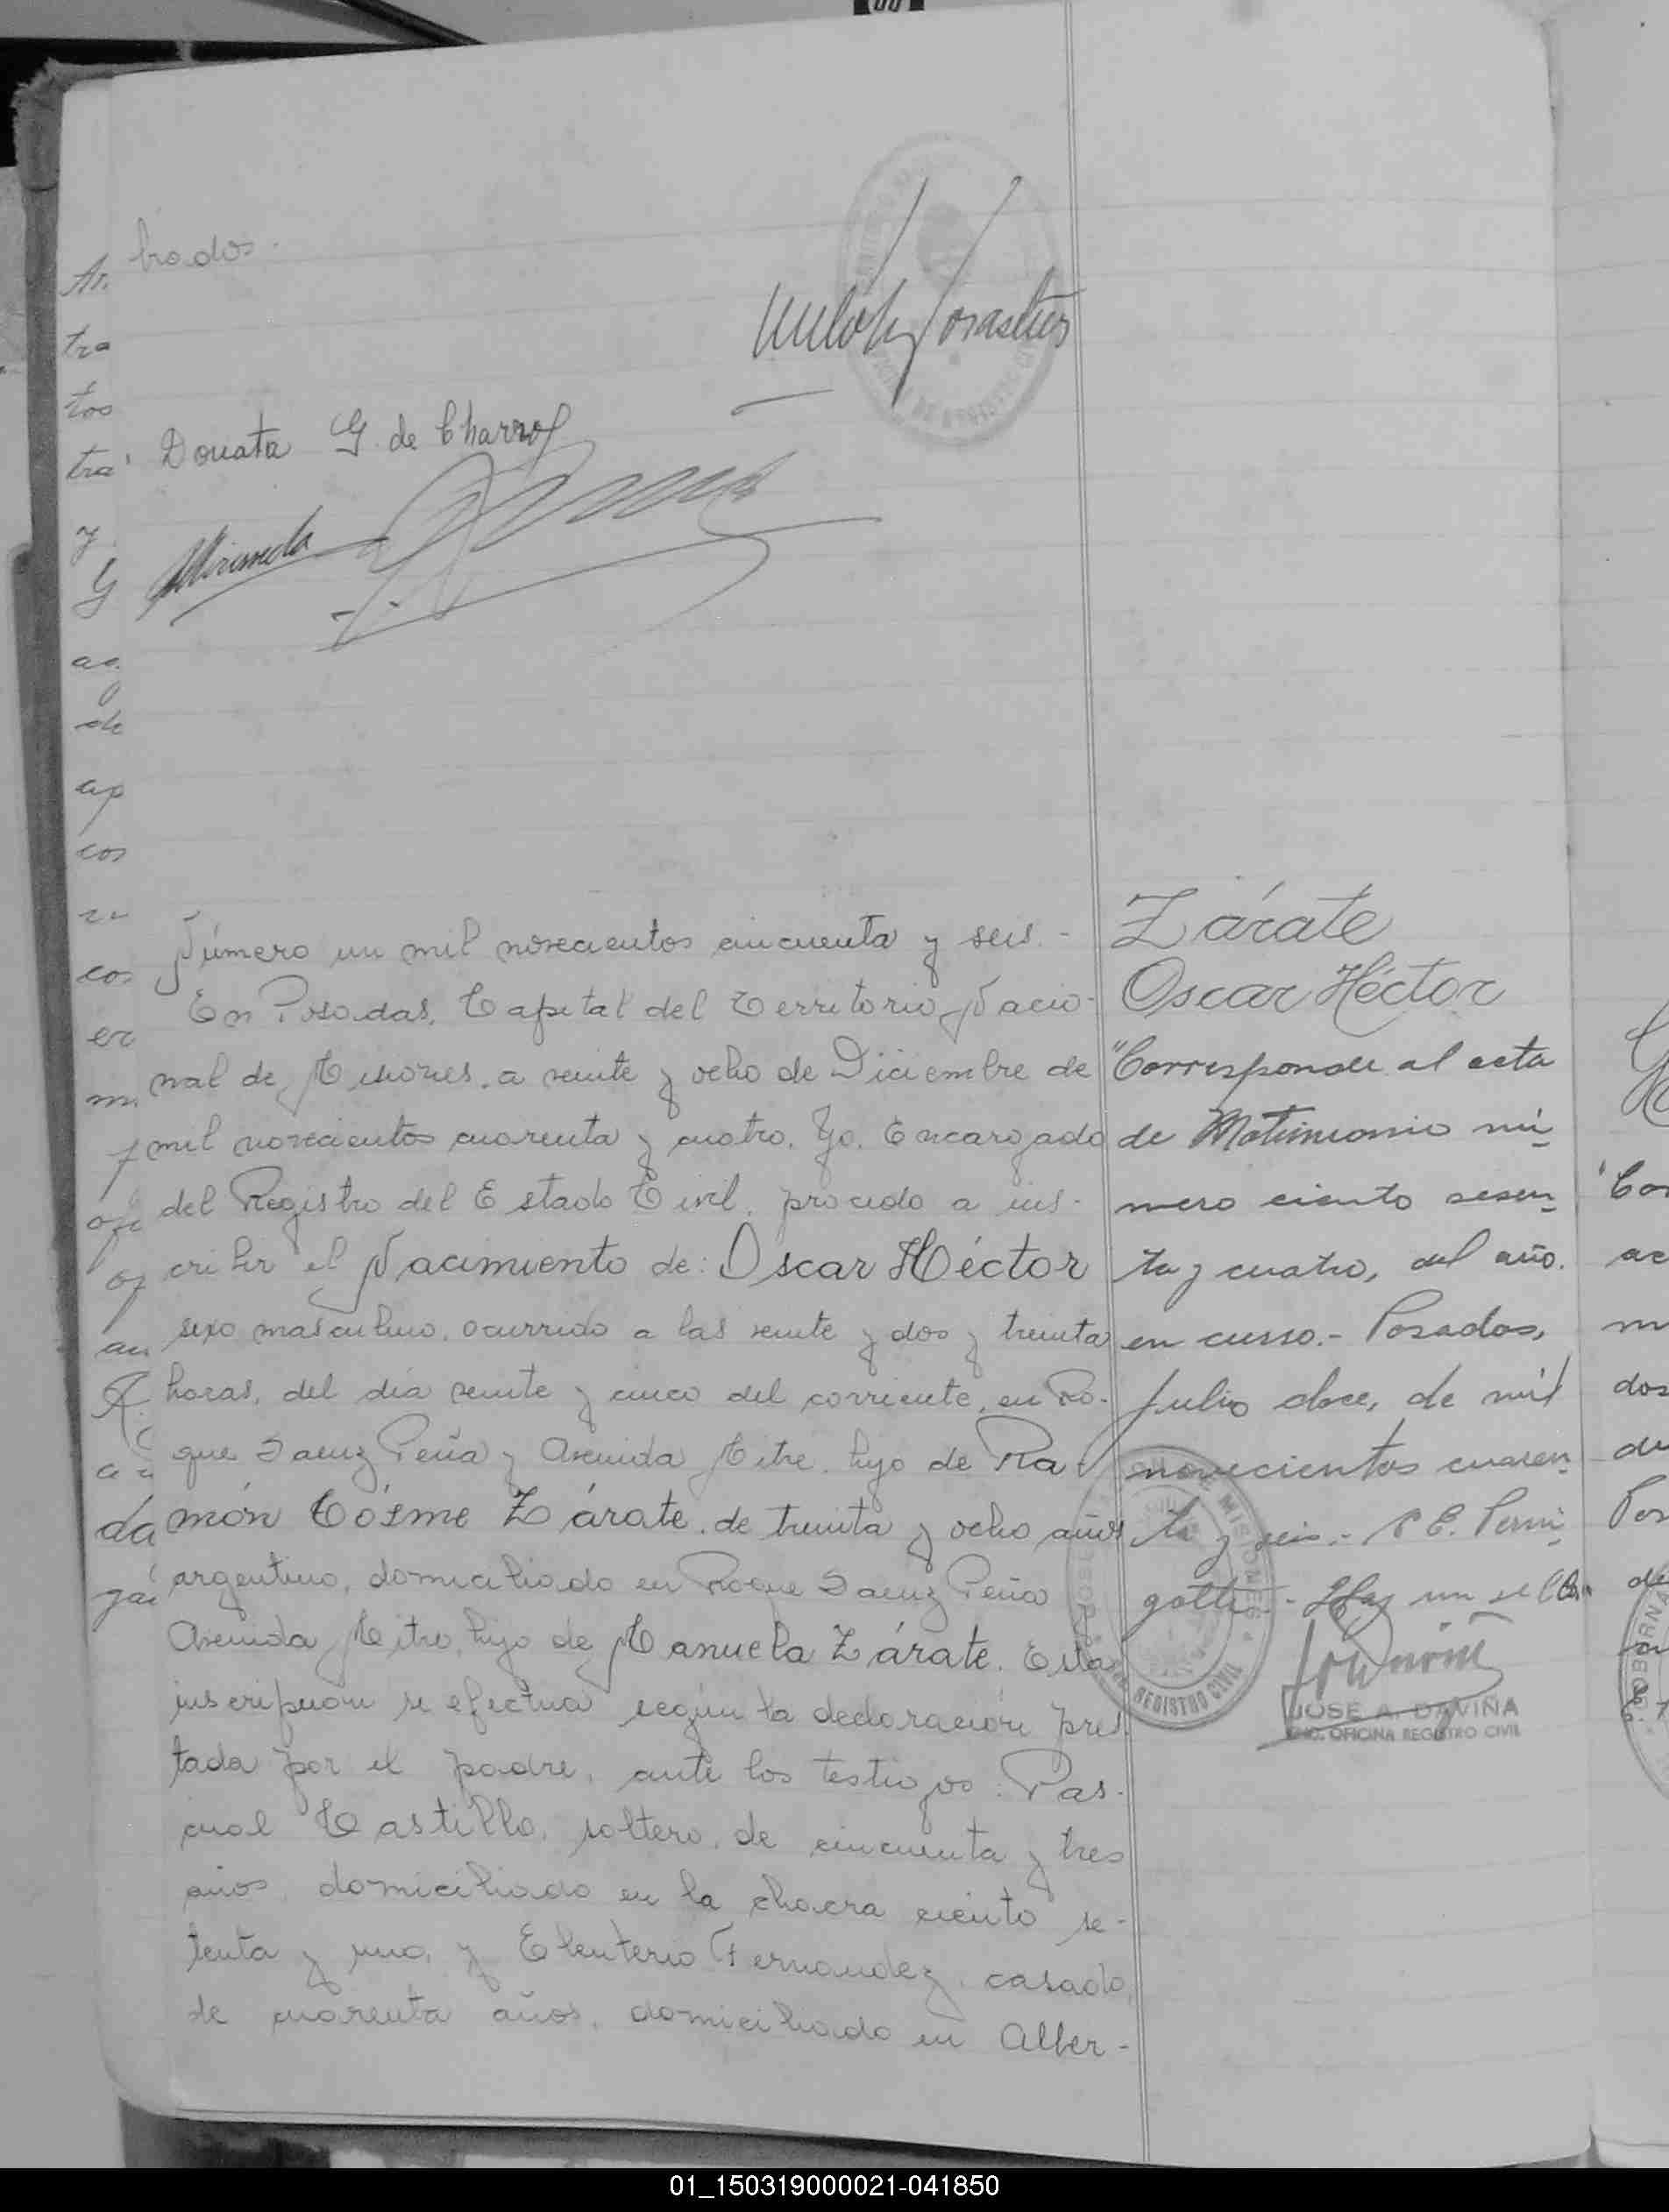 trados.
Donata G. de Charro
Miranda
Número un mil novecientos cincuenta y seis.-
En Posadas, Capital del Territorio Nacio-
nal de Misiones, a veinte y ocho de Diciembre de
mil novecientos cuarenta y cuatro. Yo, Encargado
del Registro del Estado Civil, procedo a ins-
cribir el Nacimiento de: Oscar Héctor
sexo masculino, ocurrido a las veinte y dos y treinta
horas, del día veinte y cinco del corriente, en Ro-
que Saenz Peña y Avenida Mitre, hijo de Ra-
món Cósme Zárate, de treinta y ocho años
argentino, domiciliado en Roque Saenz Peña
Avenida Mitre, hijo de Manuela Zárate. Esta
inscripción se efectua según la declaración pres-
tada por el padre, ante los testigos: Pas-
cual Castillo, soltero, de cincuenta y tres
años, domiciliado en la chacra ciento se-
tenta y uno, y Eleuterio Fernandez, casado,
de cuarenta años, domiciliado en Alber-
Zárate
Oscar Héctor
"Corresponde al acta
de Matrimonio nú-
mero ciento sesen-
ta y cuatro, del año
en curso.- Posadas,
Julio doce, de mil
novecientos cuaren-
ta y seis.-
gotti.- Hay un sello.
JOSE A. DAVIÑA
OFICINA REGISTRO CIVIL
REGISTRO CIVIL
MISIONES
01_150319000021-041850